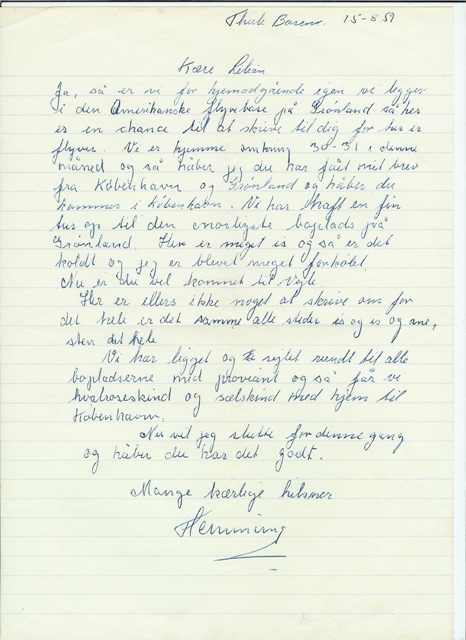 Thule Basen. 15-8 59
Kære Lilian
Ja, så er vi for hjemadgående igen vi ligger
i den Amerikanske flyvebase på Grønland så her
er en chance til at skrive til dig for her er
flyver. Vi er hjemme omkring 30-31 i denne
måned og så håber jeg du har fået mit brev
fra København og Grønland og håber du
kommer i København. Vi har haft en fin
tur op til den nordligste boplads på
Grønland. Her er meget is og så er det
koldt og jeg er blevet meget forkølet.
Nu er du vel kommet til Vejle
Her er ellers ikke noget at skrive om for
det hele er det samme alle steder is og is og sne,
sten det hele
Vi har ligget og sejlet rundt til alle
bopladserne med proviant og så får vi
hvalrosseskind og sælskind med hjem til
København.
Nu vil jeg slutte for denne gang
og håber du har det godt.
Mange kærlige hilsner
Henning